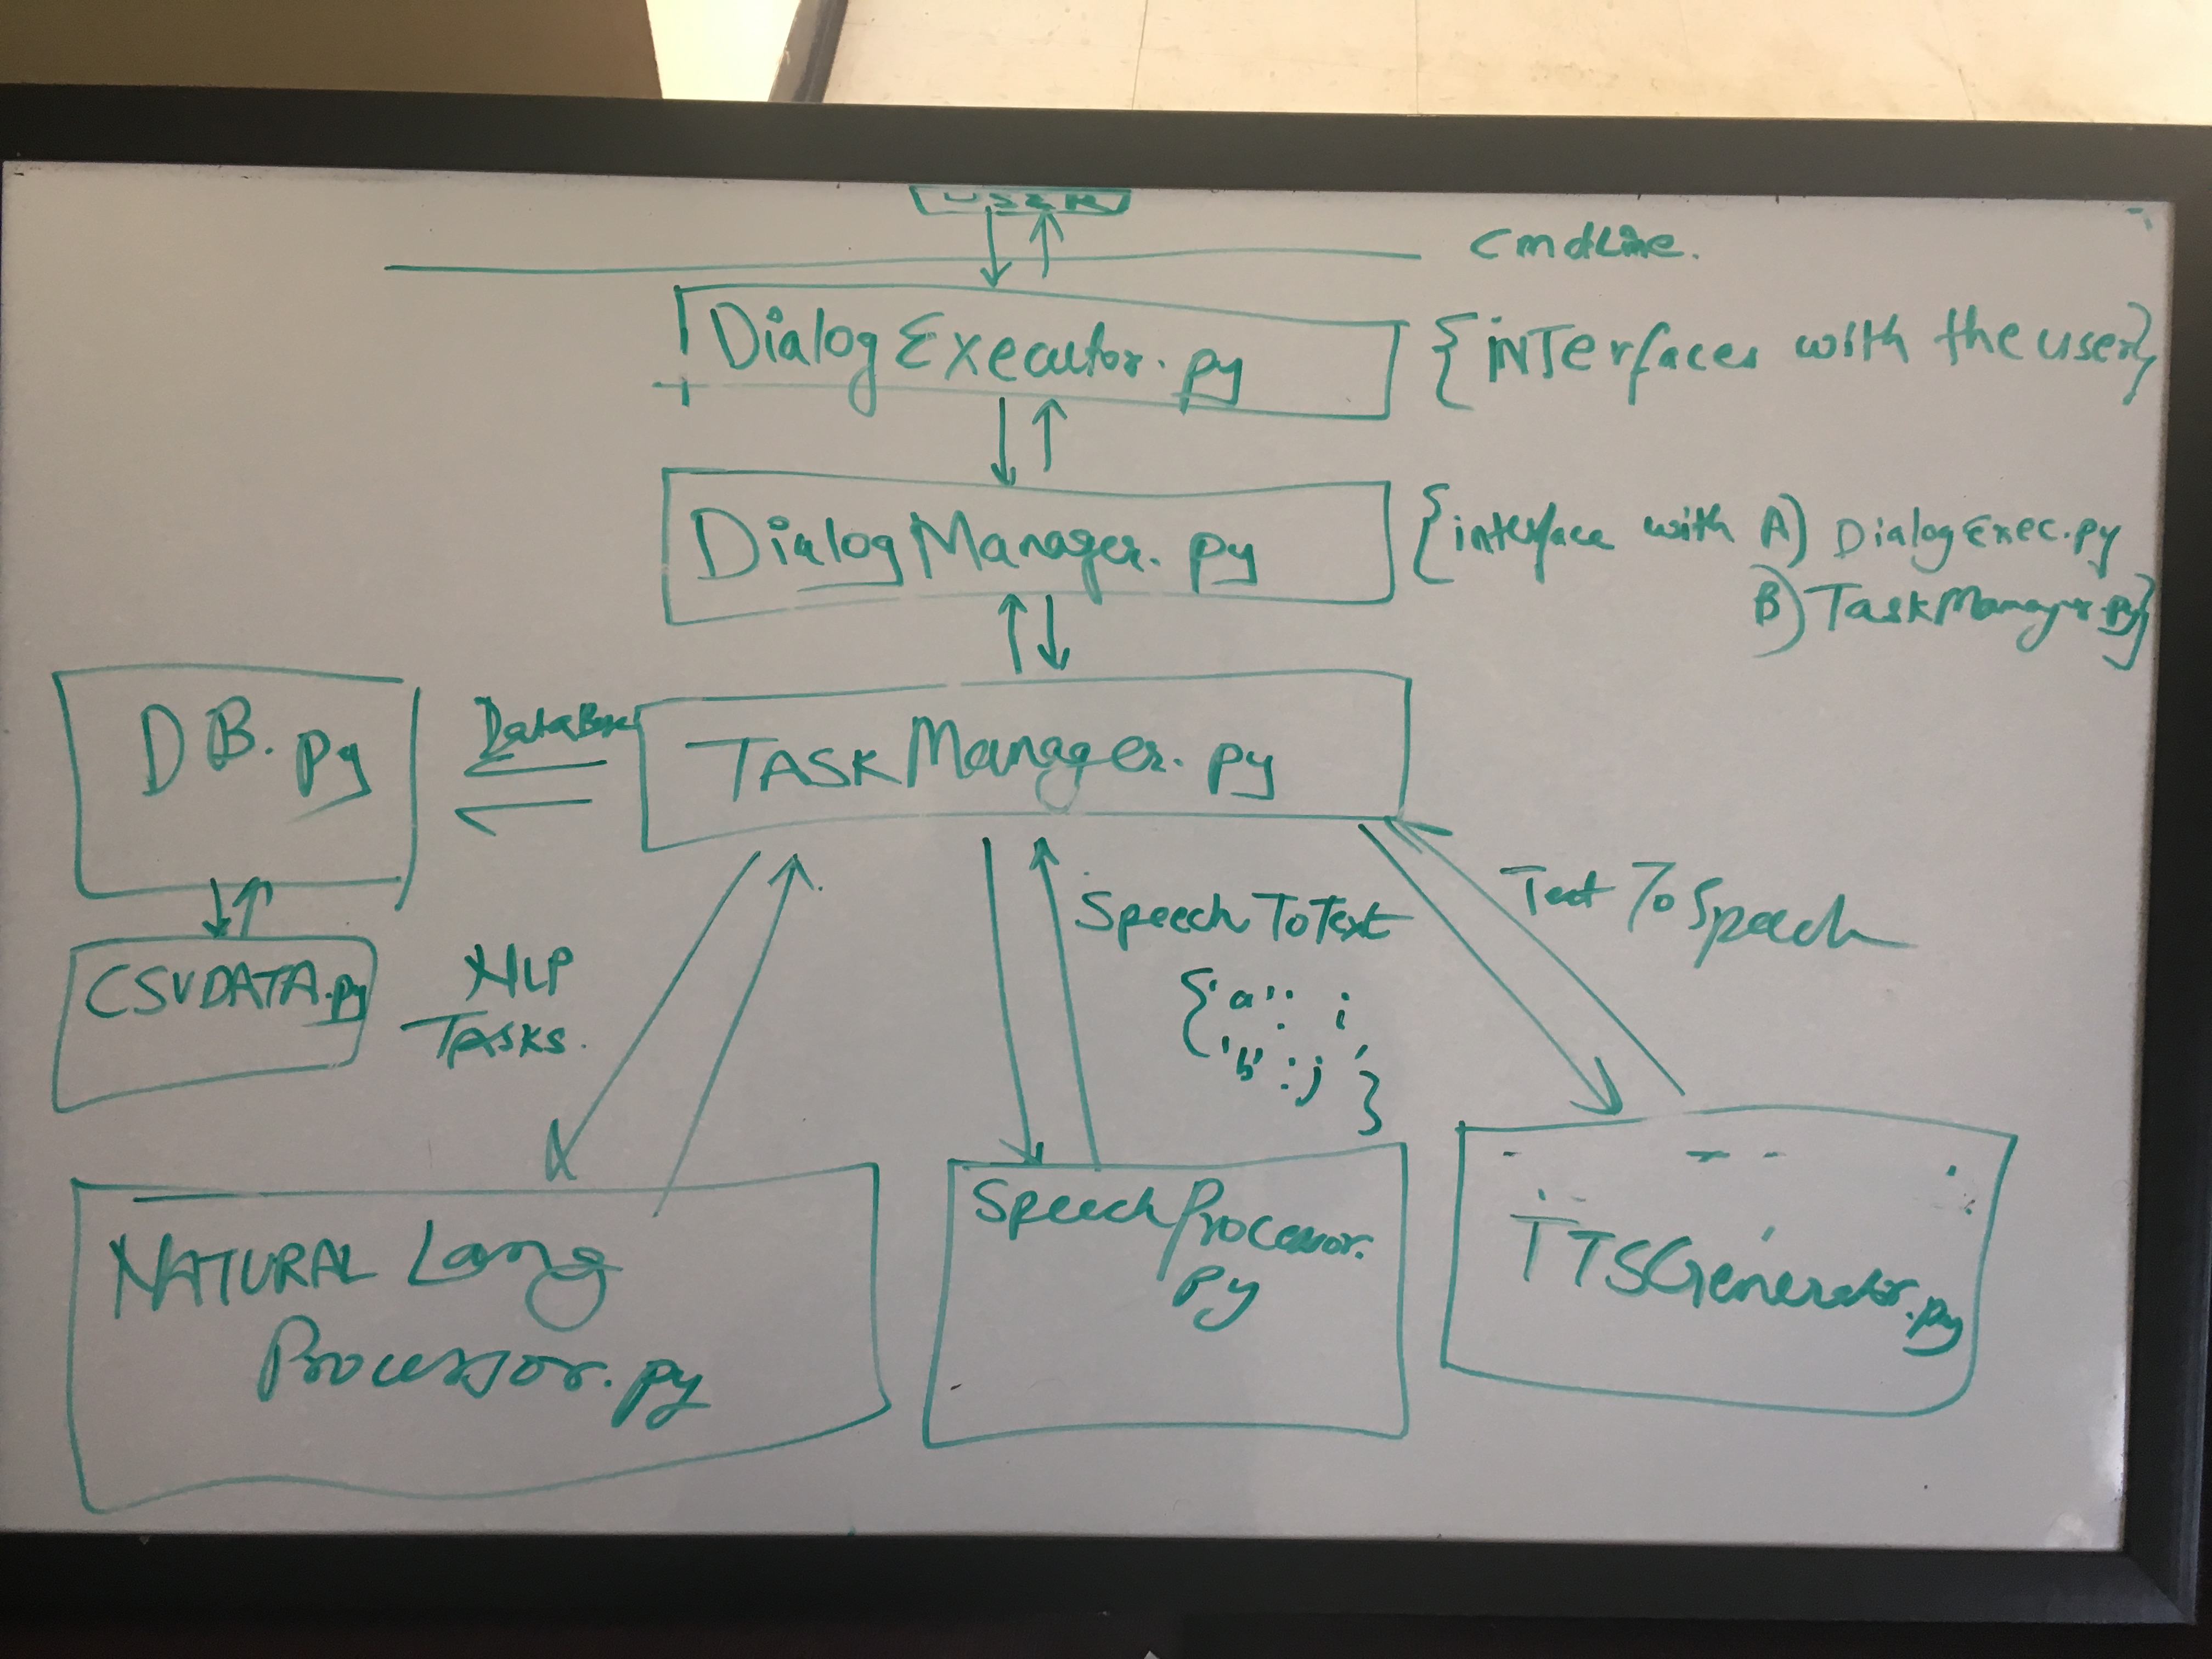 USER
cmdLine.
DialogExecutor.py
{interfaces with the user}
DialogManager.py
{interface with A) DialogExec.py
B) TaskManager.py}
DB.py
DataBase
TASKManager.py
CSVDATA.py
NLP
TASKS.
SpeechToText
{'a': i
'b': j,
}
Text To Speech
NATURAL Lang
Processor.py
SpeechProcessor.
py
TTSGenerator.py